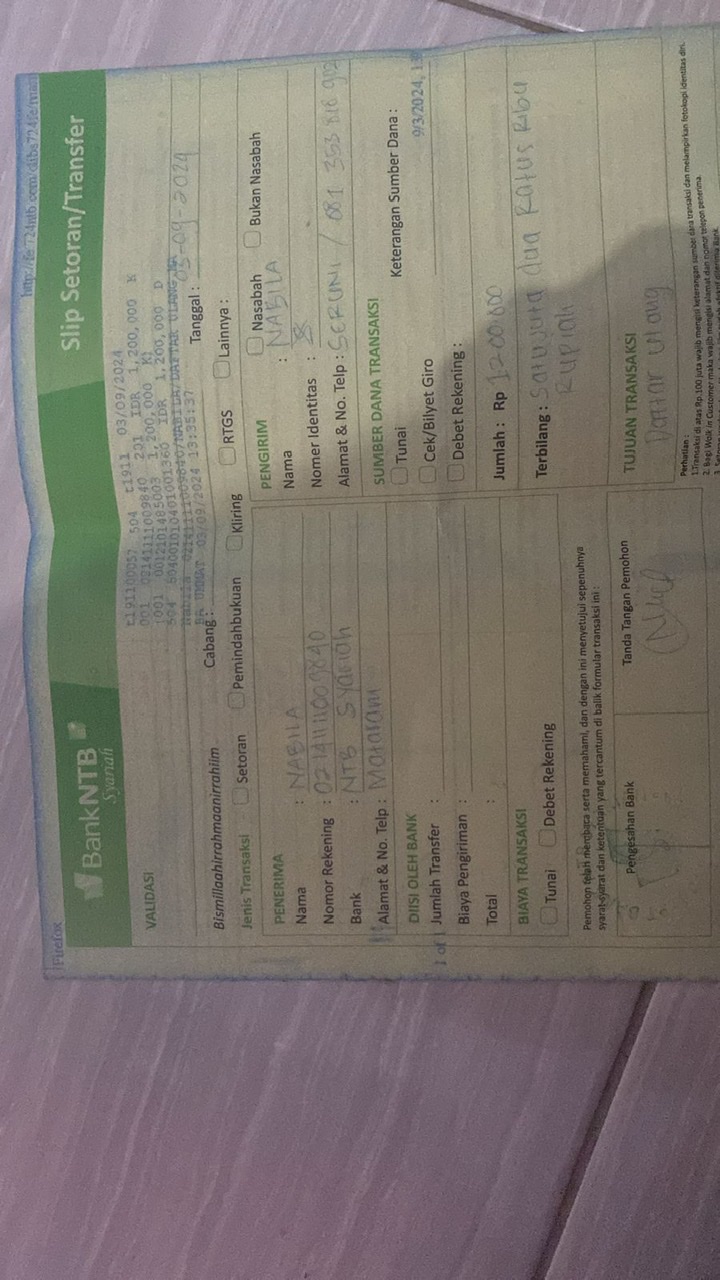 Firefox
http://
BankNTB
Syariah
Slip Setoran/Transfer
VALIDASI
t191100057 504 t1911 03/09/2024
001 02141111009840 201 IDR 1,200,000 K
1001 0012101485003 1,200,000 K
504 504001010401001360 IDR 1,200,000 D
Nabila 02141111009840/NABILA/DAFTAR ULANG
03/09/2024 13:35:37
Bismillaahirrahmaanirrahiim
Cabang :
Tanggal : 03-09-2024
Jenis Transaksi
Setoran
Pemindahbukuan
Kliring
RTGS
Lainnya :
PENERIMA
Nama : NABILA
Nomor Rekening : 02141111009840
Bank : NTB Syariah
Alamat & No. Telp : Mataram
DIISI OLEH BANK
1 of 1
Jumlah Transfer :
Biaya Pengiriman :
Total :
BIAYA TRANSAKSI
Tunai
Debet Rekening
PENGIRIM
Nasabah
Bukan Nasabah
Nama : NABILA
Nomer Identitas :
Alamat & No. Telp : SERUNI / 081 353 818 902
SUMBER DANA TRANSAKSI
Tunai
Keterangan Sumber Dana :
Cek/Bilyet Giro
9/3/2024,
Debet Rekening :
Jumlah : Rp 1200.000
Terbilang : Satu juta dua Ratus Ribu
Rupiah
Pemohon telah membaca serta memahami, dan dengan ini menyetujui sepenuhnya
syarat-syarat dan ketentuan yang tercantum di balik formular transaksi ini :
Pengesahan Bank
Tanda Tangan Pemohon
TUJUAN TRANSAKSI
Daftar ulang
Perhatian :
1.Transaksi di atas Rp.100 juta wajib mengisi keterangan sumber dana transaksi dan melampirkan fotokopi identitas diri.
2. Bagi Walk in Customer maka wajib mengisi alamat dan nomor telepon penerima.